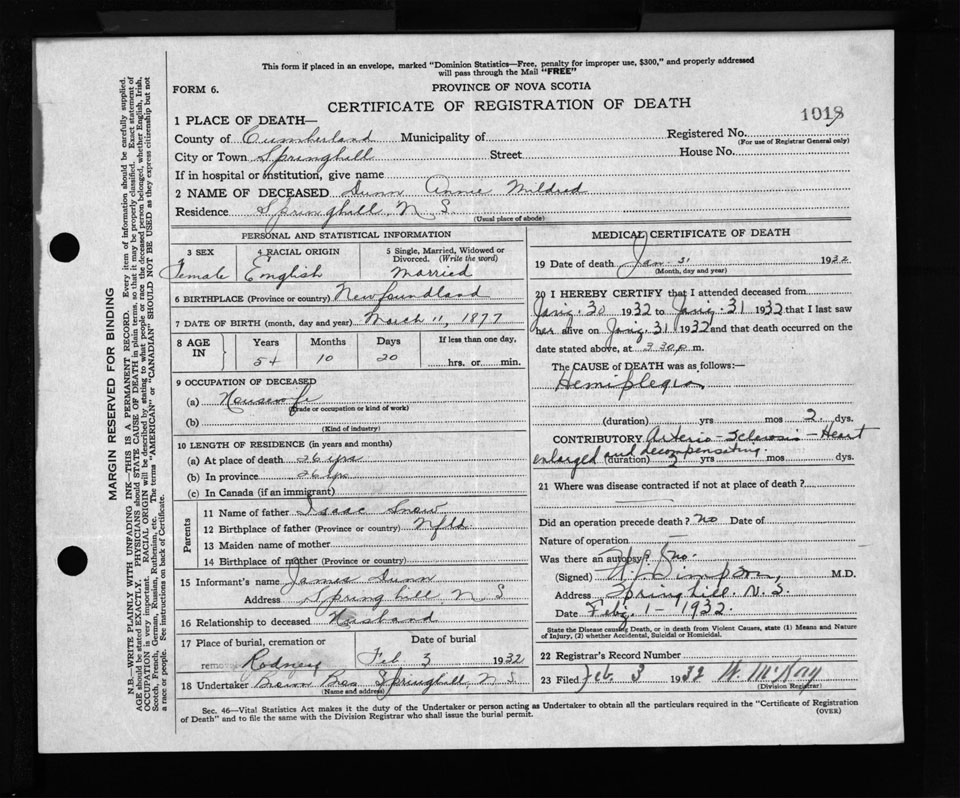 This form if placed in an envelope, marked "Dominion Statistics—Free, penalty for improper use, $300," and properly addressed
will pass through the Mail "FREE"
FORM 6.
PROVINCE OF NOVA SCOTIA
CERTIFICATE OF REGISTRATION OF DEATH
1018
1 PLACE OF DEATH—
County of Cumberland Municipality of
Registered No.
(For use of Registrar General only)
City or Town Springhill Street House No.
If in hospital or institution, give name
2 NAME OF DECEASED Dunn Annie Mildred
Residence Springhill, N. S.
(Usual place of abode)
PERSONAL AND STATISTICAL INFORMATION
3 SEX 4 RACIAL ORIGIN 5 Single, Married, Widowed or Divorced. (Write the word)
Female English Married
6 BIRTHPLACE (Province or country) Newfoundland
7 DATE OF BIRTH (month, day and year) March 11, 1877
8 AGE IN Years Months Days If less than one day,
54 10 20 hrs. or min.
9 OCCUPATION OF DECEASED
(a) Housewife
(Trade or occupation or kind of work)
(b)
(Kind of industry)
10 LENGTH OF RESIDENCE (in years and months)
(a) At place of death 26 yrs
(b) In province 26 yrs
(c) In Canada (if an immigrant)
Parents
11 Name of father Isaac Snow
12 Birthplace of father (Province or country) Nfld
13 Maiden name of mother
14 Birthplace of mother (Province or country)
15 Informant's name James Dunn
Address Springhill, N S
16 Relationship to deceased Husband
17 Place of burial, cremation or removal Date of burial
Rodney Feb 3 1932
18 Undertaker Brown Bros Springhill, N. S.
(Name and address)
MEDICAL CERTIFICATE OF DEATH
19 Date of death Jan 31 1932
(Month, day and year)
20 I HEREBY CERTIFY that I attended deceased from
30 1932 to 31 1932 that I last saw
her alive on 31 1932 and that death occurred on the
date stated above, at 3.30 p. m.
The CAUSE of DEATH was as follows:—
Hemiplegia
(duration) yrs mos 2 dys.
CONTRIBUTORY Arterio-Sclerosis - Heart
enlarged and decompensating.
(duration) yrs mos dys.
21 Where was disease contracted if not at place of death?
Did an operation precede death? no Date of
Nature of operation
Was there an autopsy? No.
(Signed) Simpson, M.D.
Address Springhill. N. S.
Date 1 - 1932.
State the Disease causing Death, or in death from Violent Causes, state (1) Means and Nature
of Injury, (2) whether Accidental, Suicidal or Homicidal.
22 Registrar's Record Number
23 Filed Feb. 3 1932 W. McKay
(Division Registrar)
Sec. 46—Vital Statistics Act makes it the duty of the Undertaker or person acting as Undertaker to obtain all the particulars required in the "Certificate of Registration
of Death" and to file the same with the Division Registrar who shall issue the burial permit.
(OVER)
MARGIN RESERVED FOR BINDING
N.B.—WRITE PLAINLY WITH UNFADING INK—THIS IS A PERMANENT RECORD. Every item of information should be carefully supplied.
AGE should be stated EXACTLY. PHYSICIANS should STATE CAUSE OF DEATH in plain terms, so that it may be properly classified. Exact statement of
OCCUPATION is very important. RACIAL ORIGIN will be described by stating to what people or race the deceased person belonged, whether English, Irish,
Scotch, French, German, Russian, Ruthenian, etc. The terms "AMERICAN" or "CANADIAN" SHOULD NOT BE USED as they express citizenship but not
a race or people. See instructions on back of Certificate.